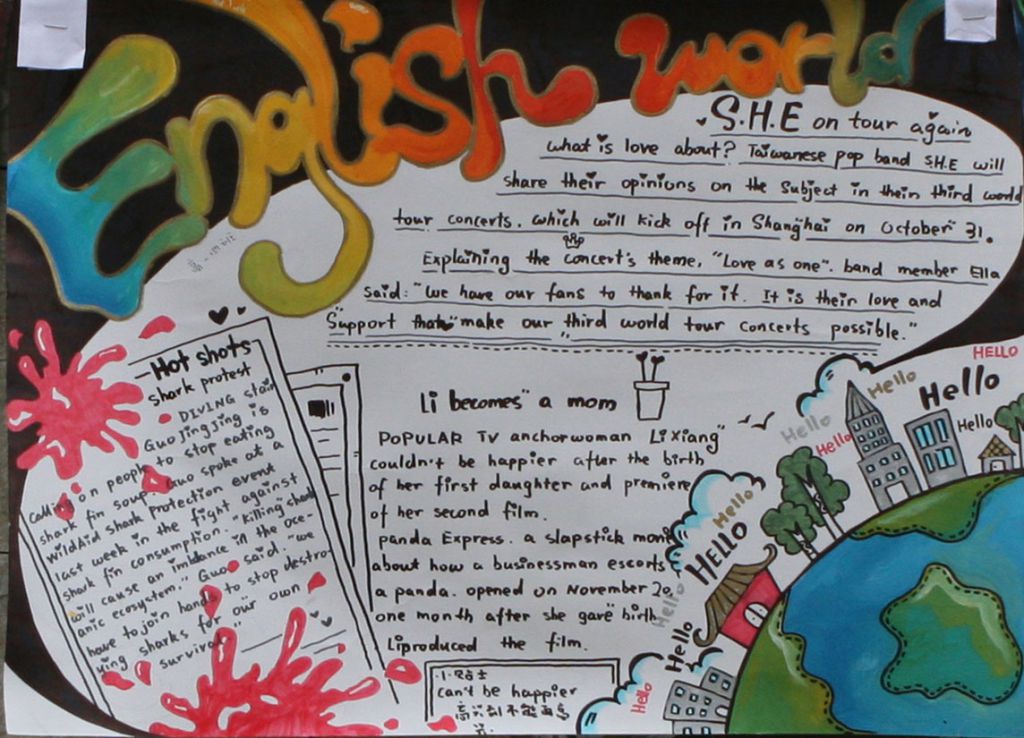 English world
S.H.E on tour again
what is love about? Taiwanese pop band S.H.E will
share their opinions on the subject in their third world
tour concerts. which will kick off in Shanghai on October 31.
Explaining the concert's theme, "Love as one". band member Ella
said: "We have our fans to thank for it. It is their love and
Support that make our third world tour concerts possible."
Hot shots
shark protest
DIVING star
Guo Jingjing is
calling on people to stop eating
shark fin soup. Guo spoke at a
WildAid shark protection event
last week in the fight against
shark fin consumption. "killing shark
will cause an imblance in the oce-
anic ecosystem." Guo said. "we
have to join hands to stop destro-
ying sharks for our own
survival"
Li becomes a mom
POPULAR TV anchorwoman Li Xiang
couldn't be happier after the birth
of her first daughter and premiere
of her second film.
panda Express. a slapstick movie
about how a businessman escorts
a panda. opened on November 20.
one month after she gave birth
Li produced the film.
小贴士
can't be happier
高兴到不能再高
兴.
HELLO
Hello
Hello
Hello
Hello
Hello
Hello
HELLO
Hello
Hello
Hello